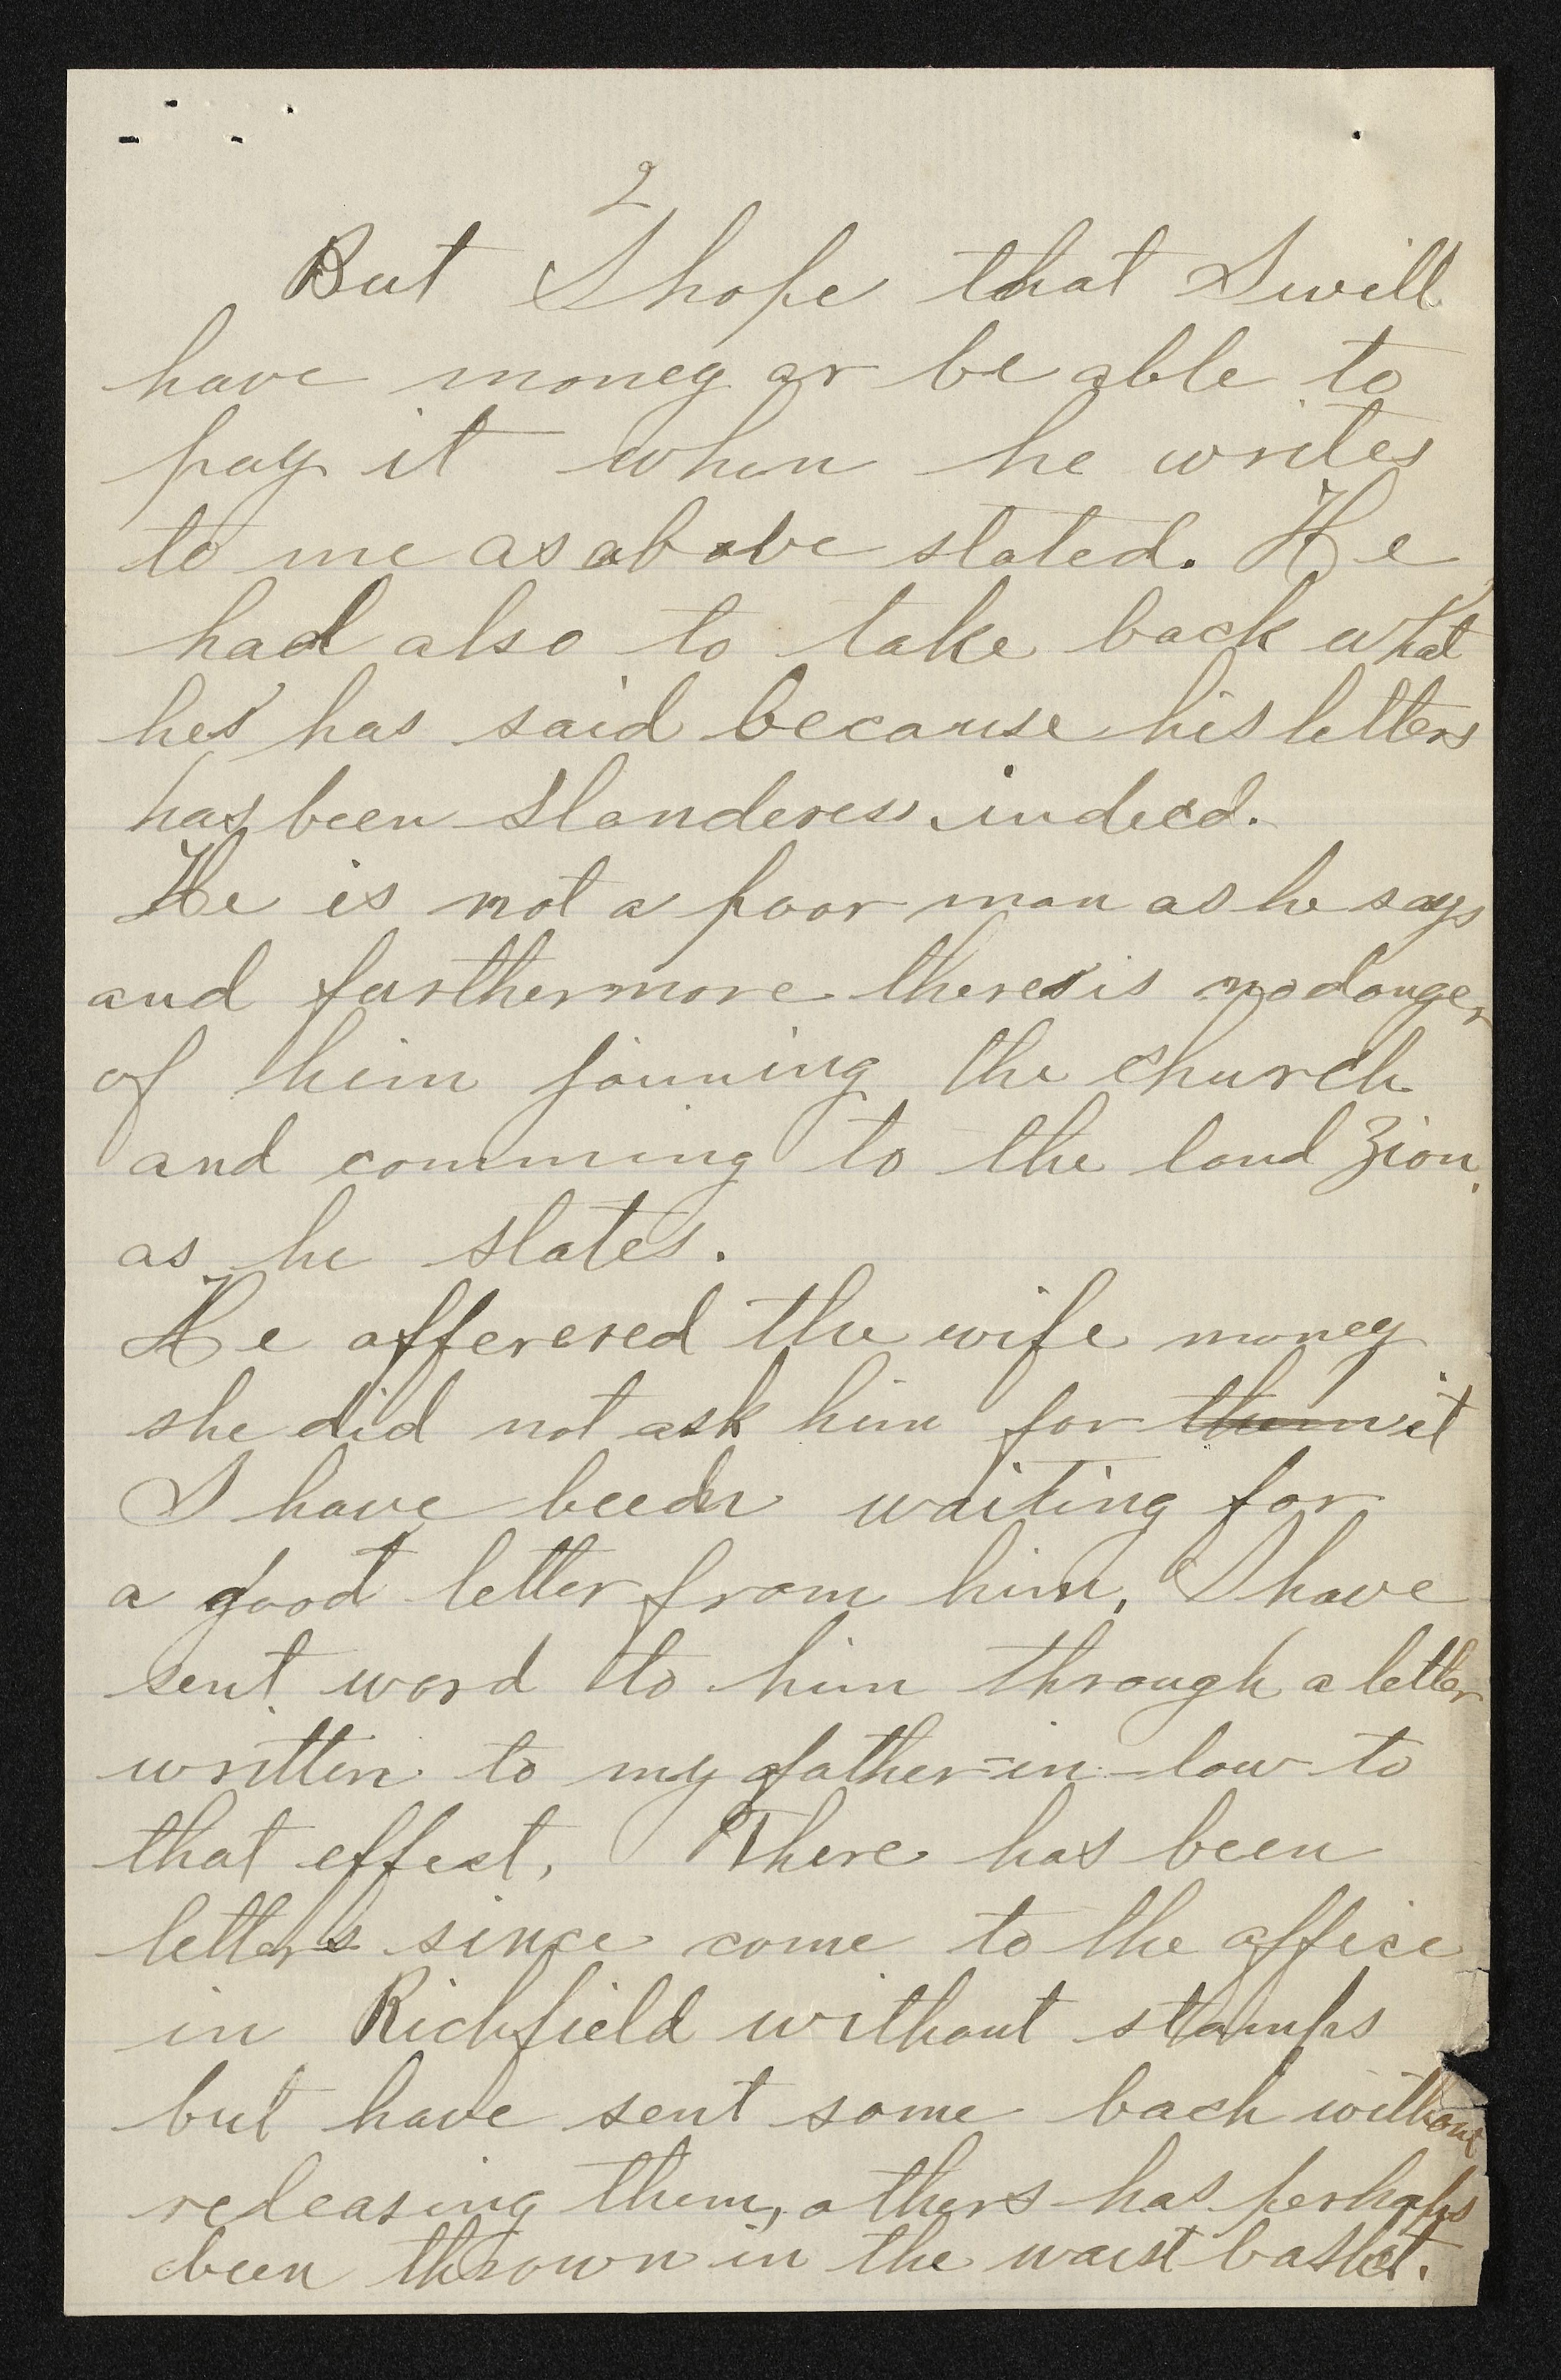 2
But I hope that I will
have money or be able to
pay it when he writes
to me as above stated. He
had also to take back what
he has said because his letters
has been slanderess indeed.
He is not a poor man as he says
and furthermore there is no danger
of him joining the church
and comming to the land Zion.
as he states.
He offerered the wife money
she did not ask him for them it
I have been waiting for
a good letter from him, I have
sent word to him through a letter
written to my father-in-law to
that effect, There has been
letters since come to the office
in Richfield without stamps
but have sent some back without
releasing them, others has perhaps
been thrown in the wast basket.